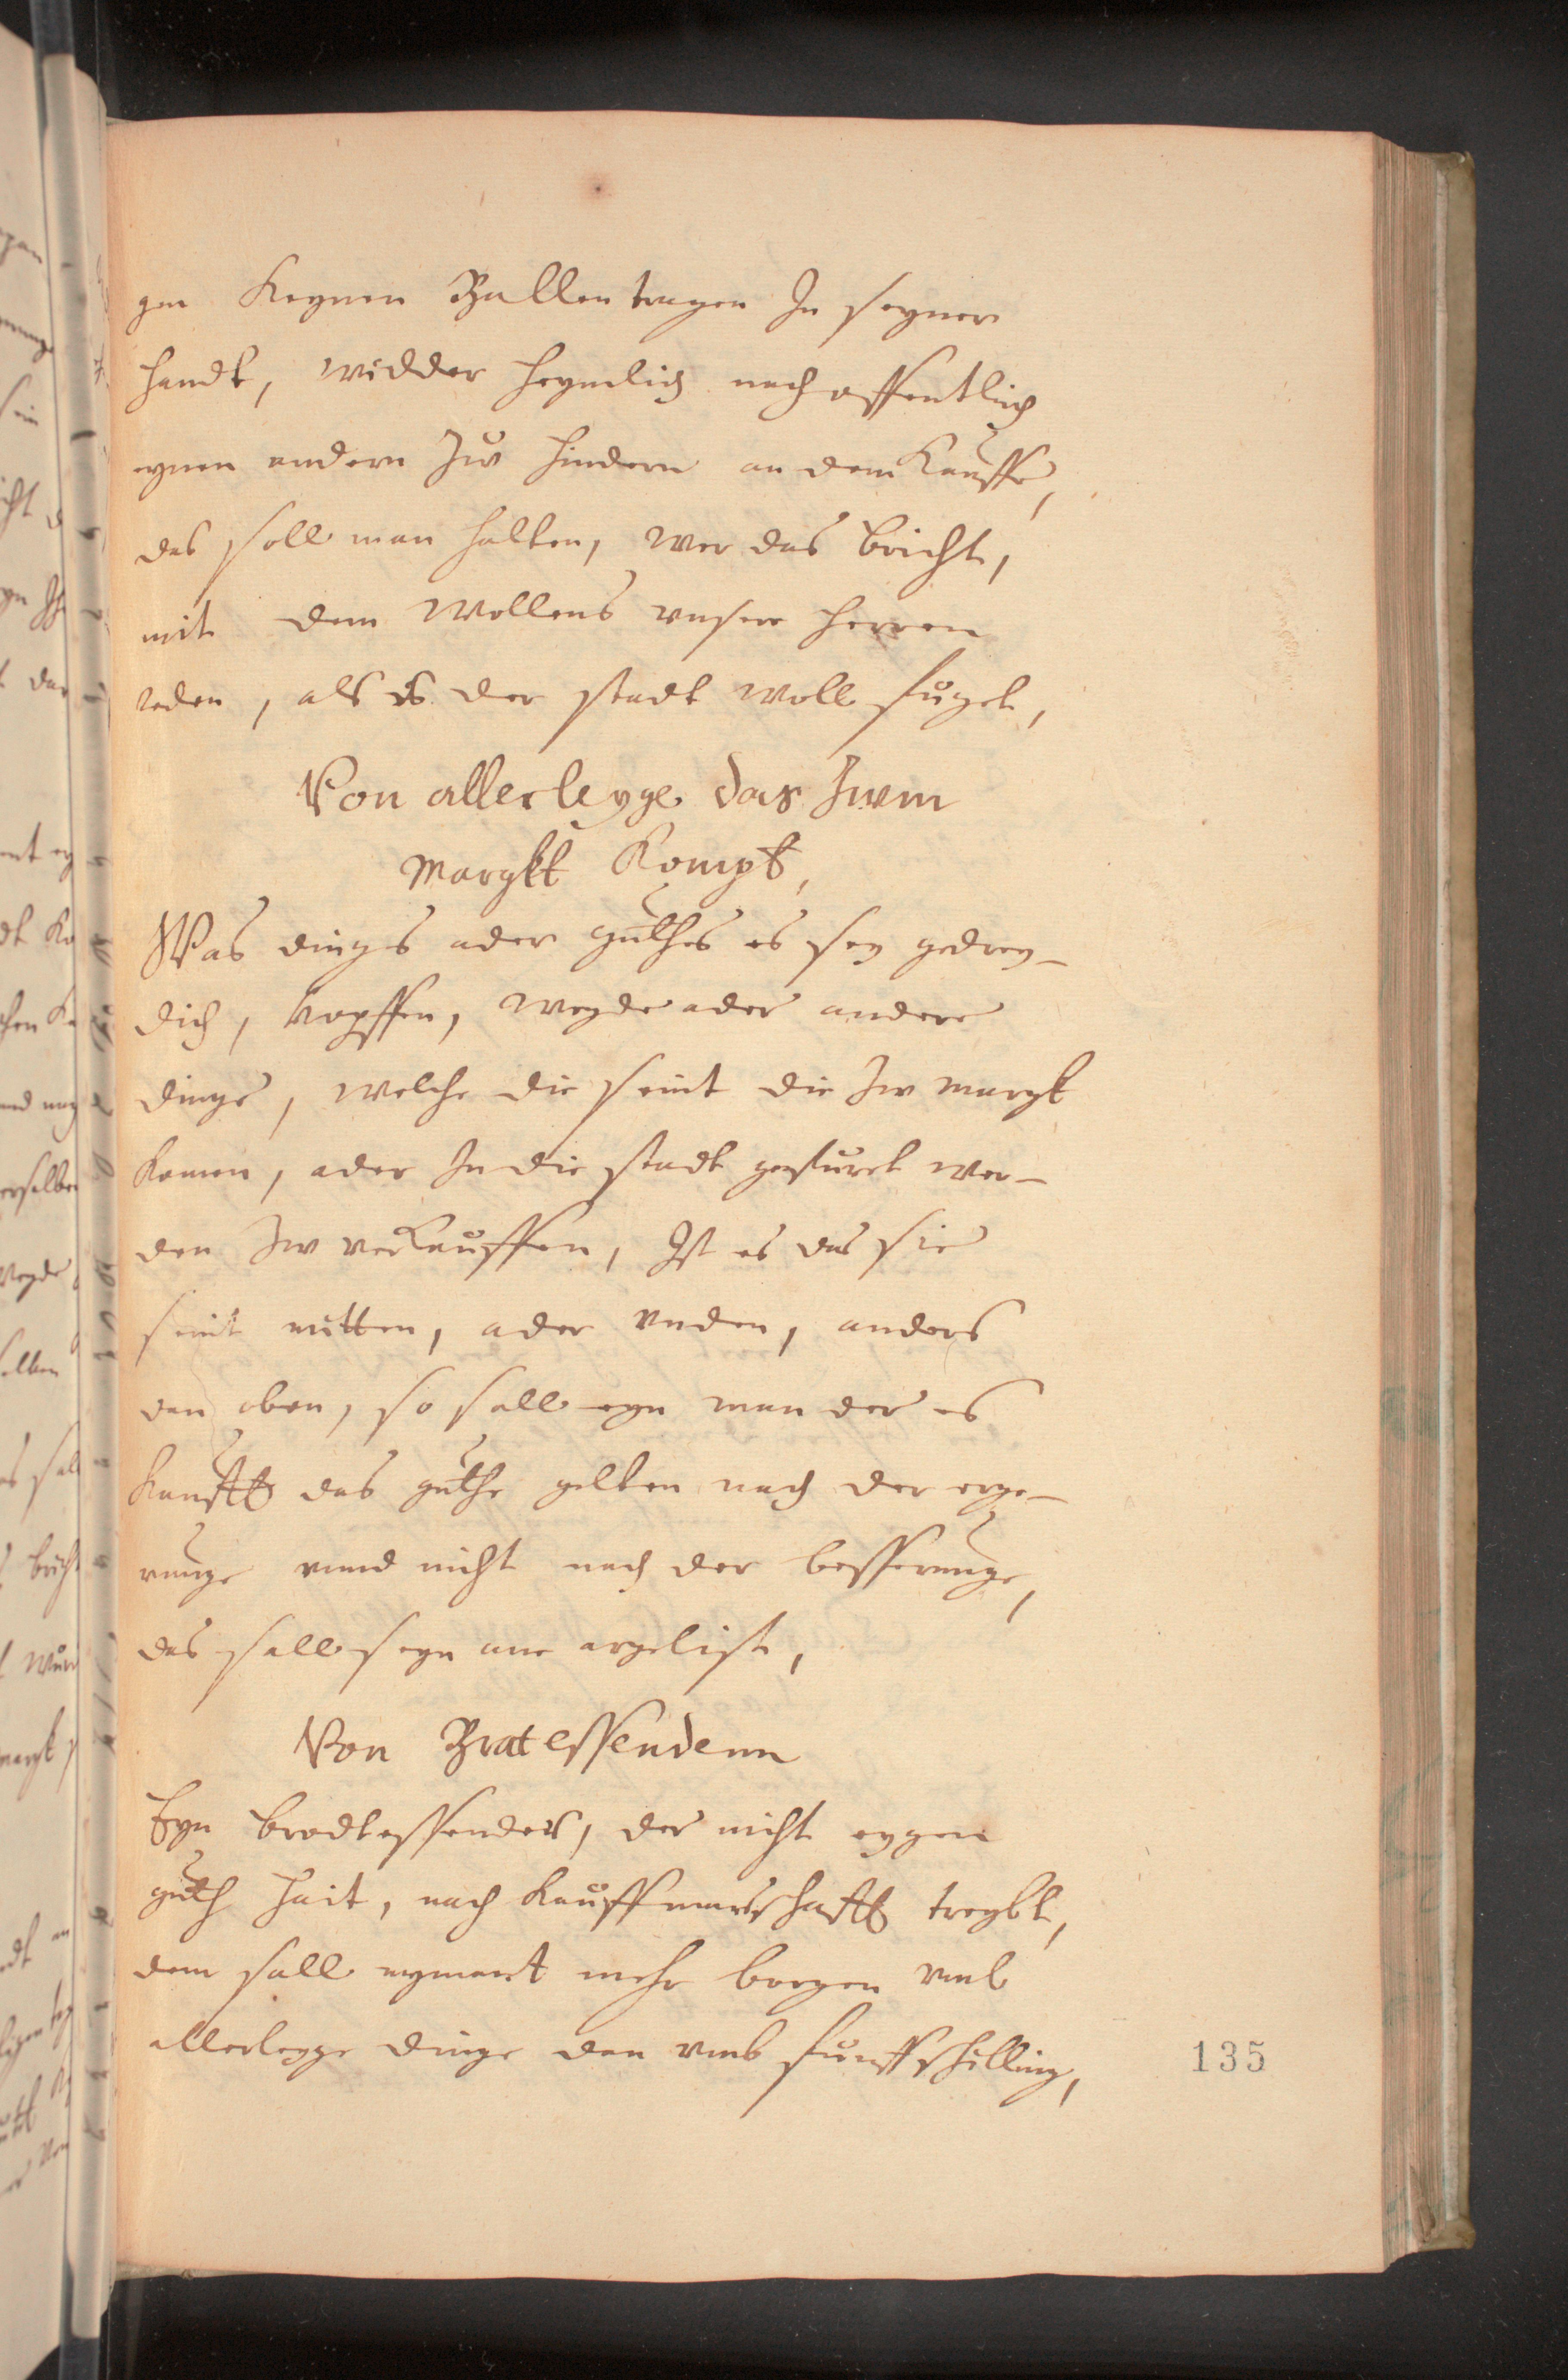 gen Keynen Ballen tragen In seyner
handt, widder heymlich nach offentlich
eynen andern Zw hindern an dem Kauffe,
das soll man halten, wer das bricht,
mit dem wollens unsere herren
reden, als es der stadt woll fuget,
Von allerleyge das Zwm
margkt Kompt,
Was dinges ader guthes es sey gedrey-
dich, hopffen, weyde ader andere
dinge, welche die seint die Zw margk
komen, ader In die stadt gefuret wer-
den Zw verkauffen, Ist es das sie
seint mitten, ader unden, anders
dan oben, so sall eyn man der es
kaufft das guthe gelten nach der erge-
runge vnnd nicht nach der besserunge,
das sall seyn ane argelist,
Von Brat essendenn
Eyn brodtessender, der nicht eygen
guth hait, nach kauffmanschafft treybt,
dem sall nymant mehr borgen vmb
allerleyge dinge den vmb funff schilling,
135